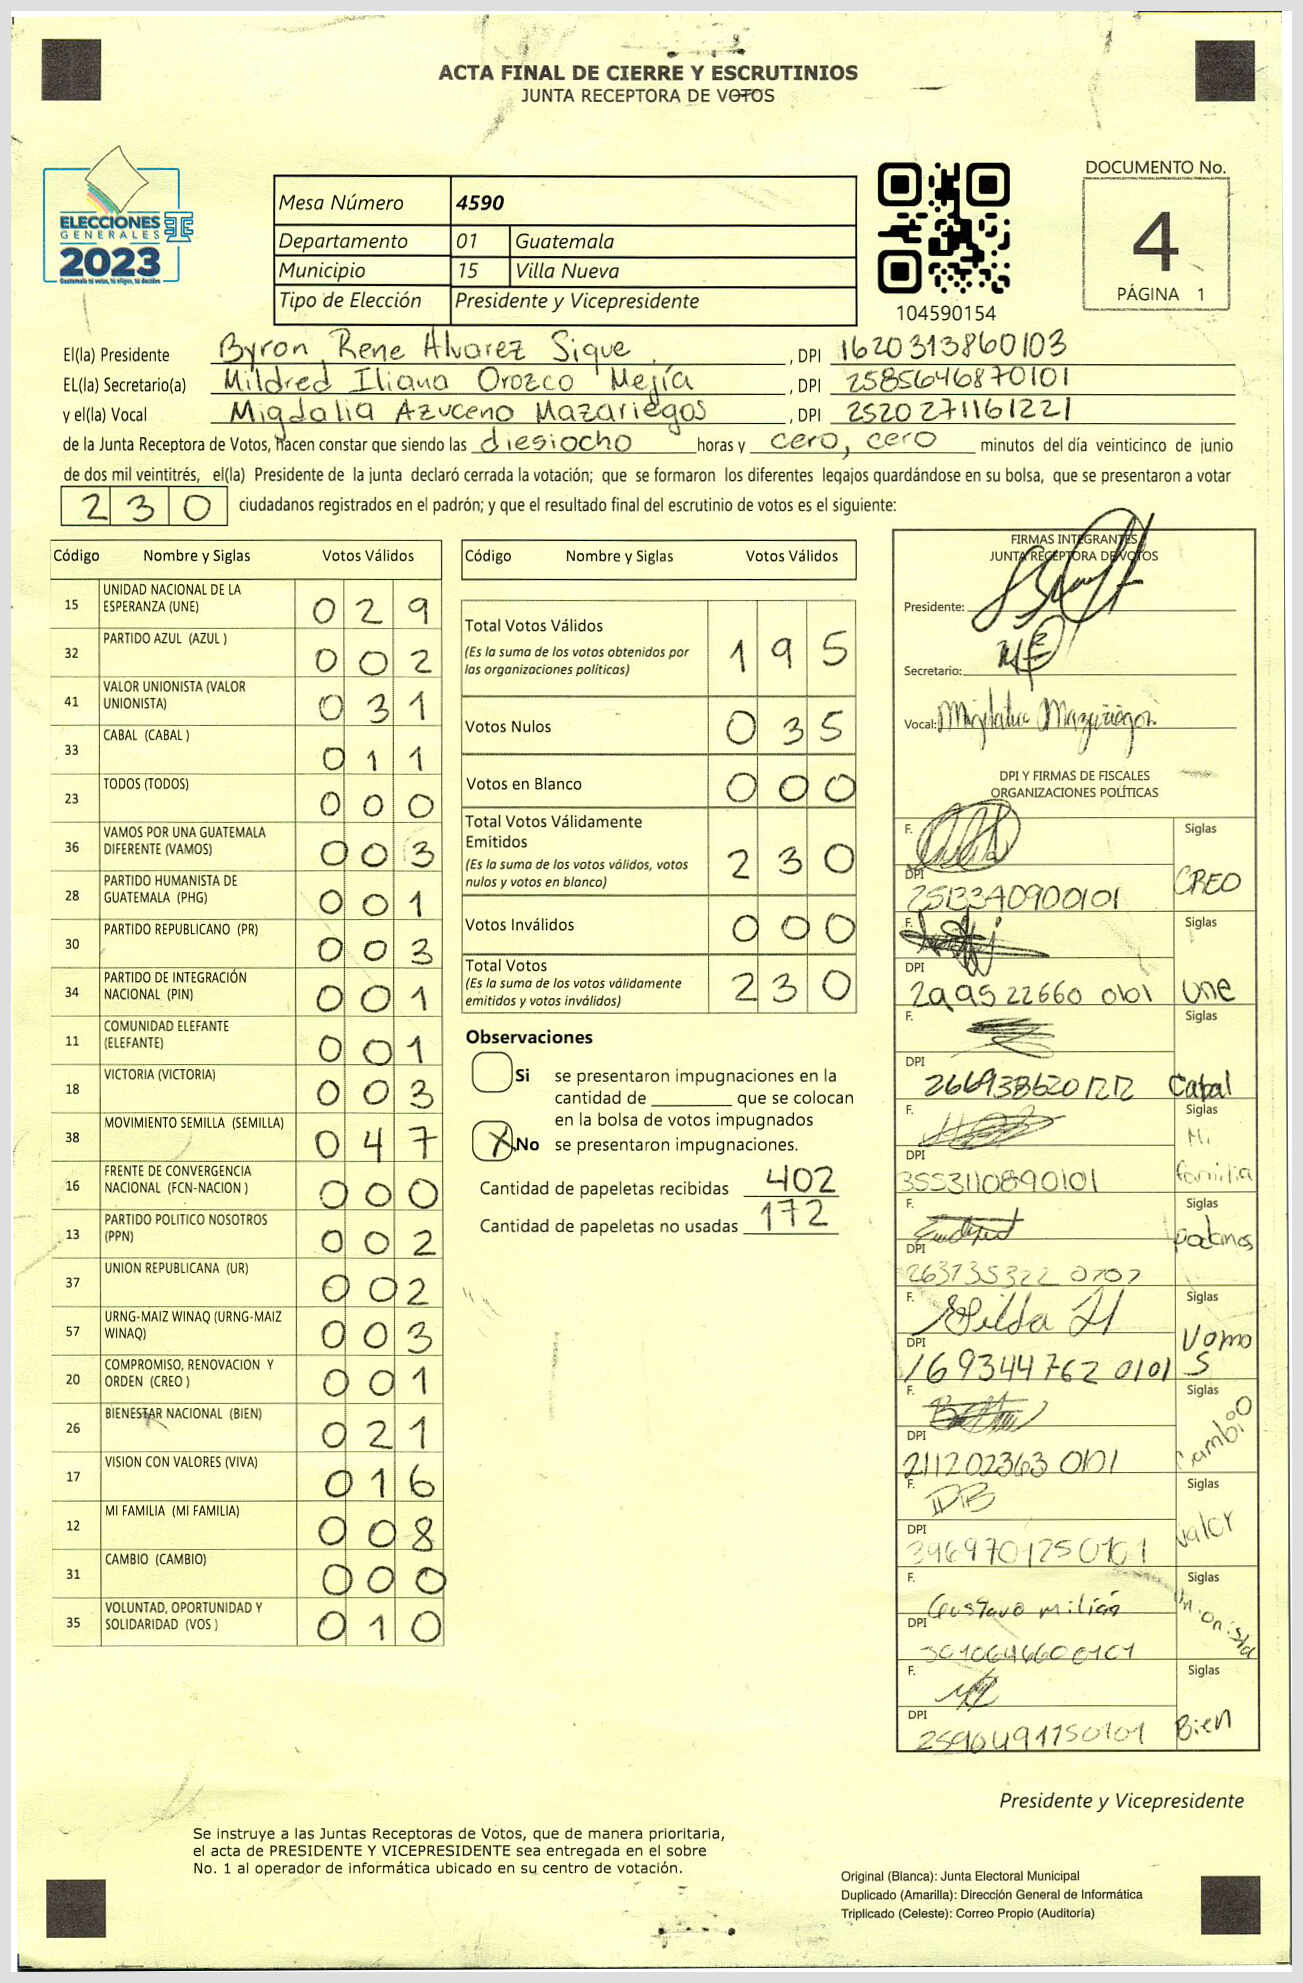 ACTA FINAL DE CIERRE Y ESCRUTINIOS
JUNTA RECEPTORA DE VOTOS
ELECCIONES
GENERALES
2023
Guatemala tú votas, tú eliges, tú decides
Mesa Número 4590
Departamento 01 Guatemala
Municipio 15 Villa Nueva
Tipo de Elección Presidente y Vicepresidente
104590154
DOCUMENTO No.
4
PÁGINA 1
El(la) Presidente Byron Rene Alvarez Sique, DPI 1620313860103
EL(la) Secretario(a) Mildred Iliana Orozco Mejía, DPI 2585646870101
y el(la) Vocal Migdalia Azuceno Mazariegos, DPI 2520271161221
de la Junta Receptora de Votos, hacen constar que siendo las diesiocho horas y cero, cero minutos del día veinticinco de junio
de dos mil veintitrés, el(la) Presidente de la junta declaró cerrada la votación; que se formaron los diferentes legajos quardándose en su bolsa, que se presentaron a votar
230 ciudadanos registrados en el padrón; y que el resultado final del escrutinio de votos es el siguiente:
Código Nombre y Siglas Votos Válidos
15 UNIDAD NACIONAL DE LA ESPERANZA (UNE) 029
32 PARTIDO AZUL (AZUL ) 002
41 VALOR UNIONISTA (VALOR UNIONISTA) 031
33 CABAL (CABAL ) 011
23 TODOS (TODOS) 000
36 VAMOS POR UNA GUATEMALA DIFERENTE (VAMOS) 003
28 PARTIDO HUMANISTA DE GUATEMALA (PHG) 001
30 PARTIDO REPUBLICANO (PR) 003
34 PARTIDO DE INTEGRACIÓN NACIONAL (PIN) 001
11 COMUNIDAD ELEFANTE (ELEFANTE) 001
18 VICTORIA (VICTORIA) 003
38 MOVIMIENTO SEMILLA (SEMILLA) 047
16 FRENTE DE CONVERGENCIA NACIONAL (FCN-NACION ) 000
13 PARTIDO POLITICO NOSOTROS (PPN) 002
37 UNION REPUBLICANA (UR) 002
57 URNG-MAIZ WINAQ (URNG-MAIZ WINAQ) 003
20 COMPROMISO, RENOVACION Y ORDEN (CREO ) 001
26 BIENESTAR NACIONAL (BIEN) 021
17 VISION CON VALORES (VIVA) 016
12 MI FAMILIA (MI FAMILIA) 008
31 CAMBIO (CAMBIO) 000
35 VOLUNTAD, OPORTUNIDAD Y SOLIDARIDAD (VOS ) 010
Código Nombre y Siglas Votos Válidos
Total Votos Válidos 195
(Es la suma de los votos obtenidos por
las organizaciones políticas)
Votos Nulos 035
Votos en Blanco 000
Total Votos Válidamente
Emitidos 230
(Es la suma de los votos válidos, votos
nulos y votos en blanco)
Votos Inválidos 000
Total Votos 230
(Es la suma de los votos válidamente
emitidos y votos inválidos)
Observaciones
Si se presentaron impugnaciones en la
cantidad de ________ que se colocan
en la bolsa de votos impugnados
X No se presentaron impugnaciones.
Cantidad de papeletas recibidas 402
Cantidad de papeletas no usadas 172
FIRMAS INTEGRANTES
JUNTA RECEPTORA DE VOTOS
Presidente:
Secretario:
Vocal: Migdalia Mazariegos
DPI Y FIRMAS DE FISCALES
ORGANIZACIONES POLÍTICAS
F. Siglas
DPI 2513340900101 CREO
F. Siglas
DPI 2995 22660 0101 Une
F. Siglas
DPI Cabal
F. Siglas
DPI 3553110890101 Mi familia
F. Siglas
DPI podemos
F. Siglas
DPI 169344762 0101 Vamos
F. Siglas
DPI 211202363 0101 Cambio
F. DB Siglas
DPI 3969701250101 Valor
F. Gustavo milián Siglas
DPI 3010646600101 Unionista
F. Siglas
DPI 2590491750101 Bien
Presidente y Vicepresidente
Se instruye a las Juntas Receptoras de Votos, que de manera prioritaria,
el acta de PRESIDENTE Y VICEPRESIDENTE sea entregada en el sobre
No. 1 al operador de informática ubicado en su centro de votación.
Original (Blanca): Junta Electoral Municipal
Duplicado (Amarilla): Dirección General de Informática
Triplicado (Celeste): Correo Propio (Auditoría)